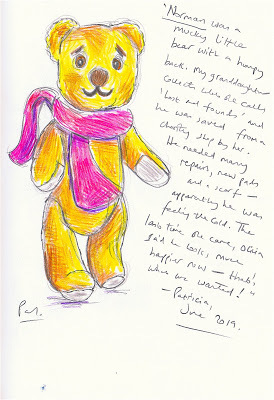 'Norman was a
mucky little
bear with a humpy
back. My granddaughter
collects what she calls
'lost and founds', and
he was saved from a
charity shop by her.
He needed many
repairs, new pads
and a scarf –
apparently he was
feeling the cold. The
last time she came, Olivia
said he looks much
happier now – that's
what we wanted!'
– Patricia,
June 2019.